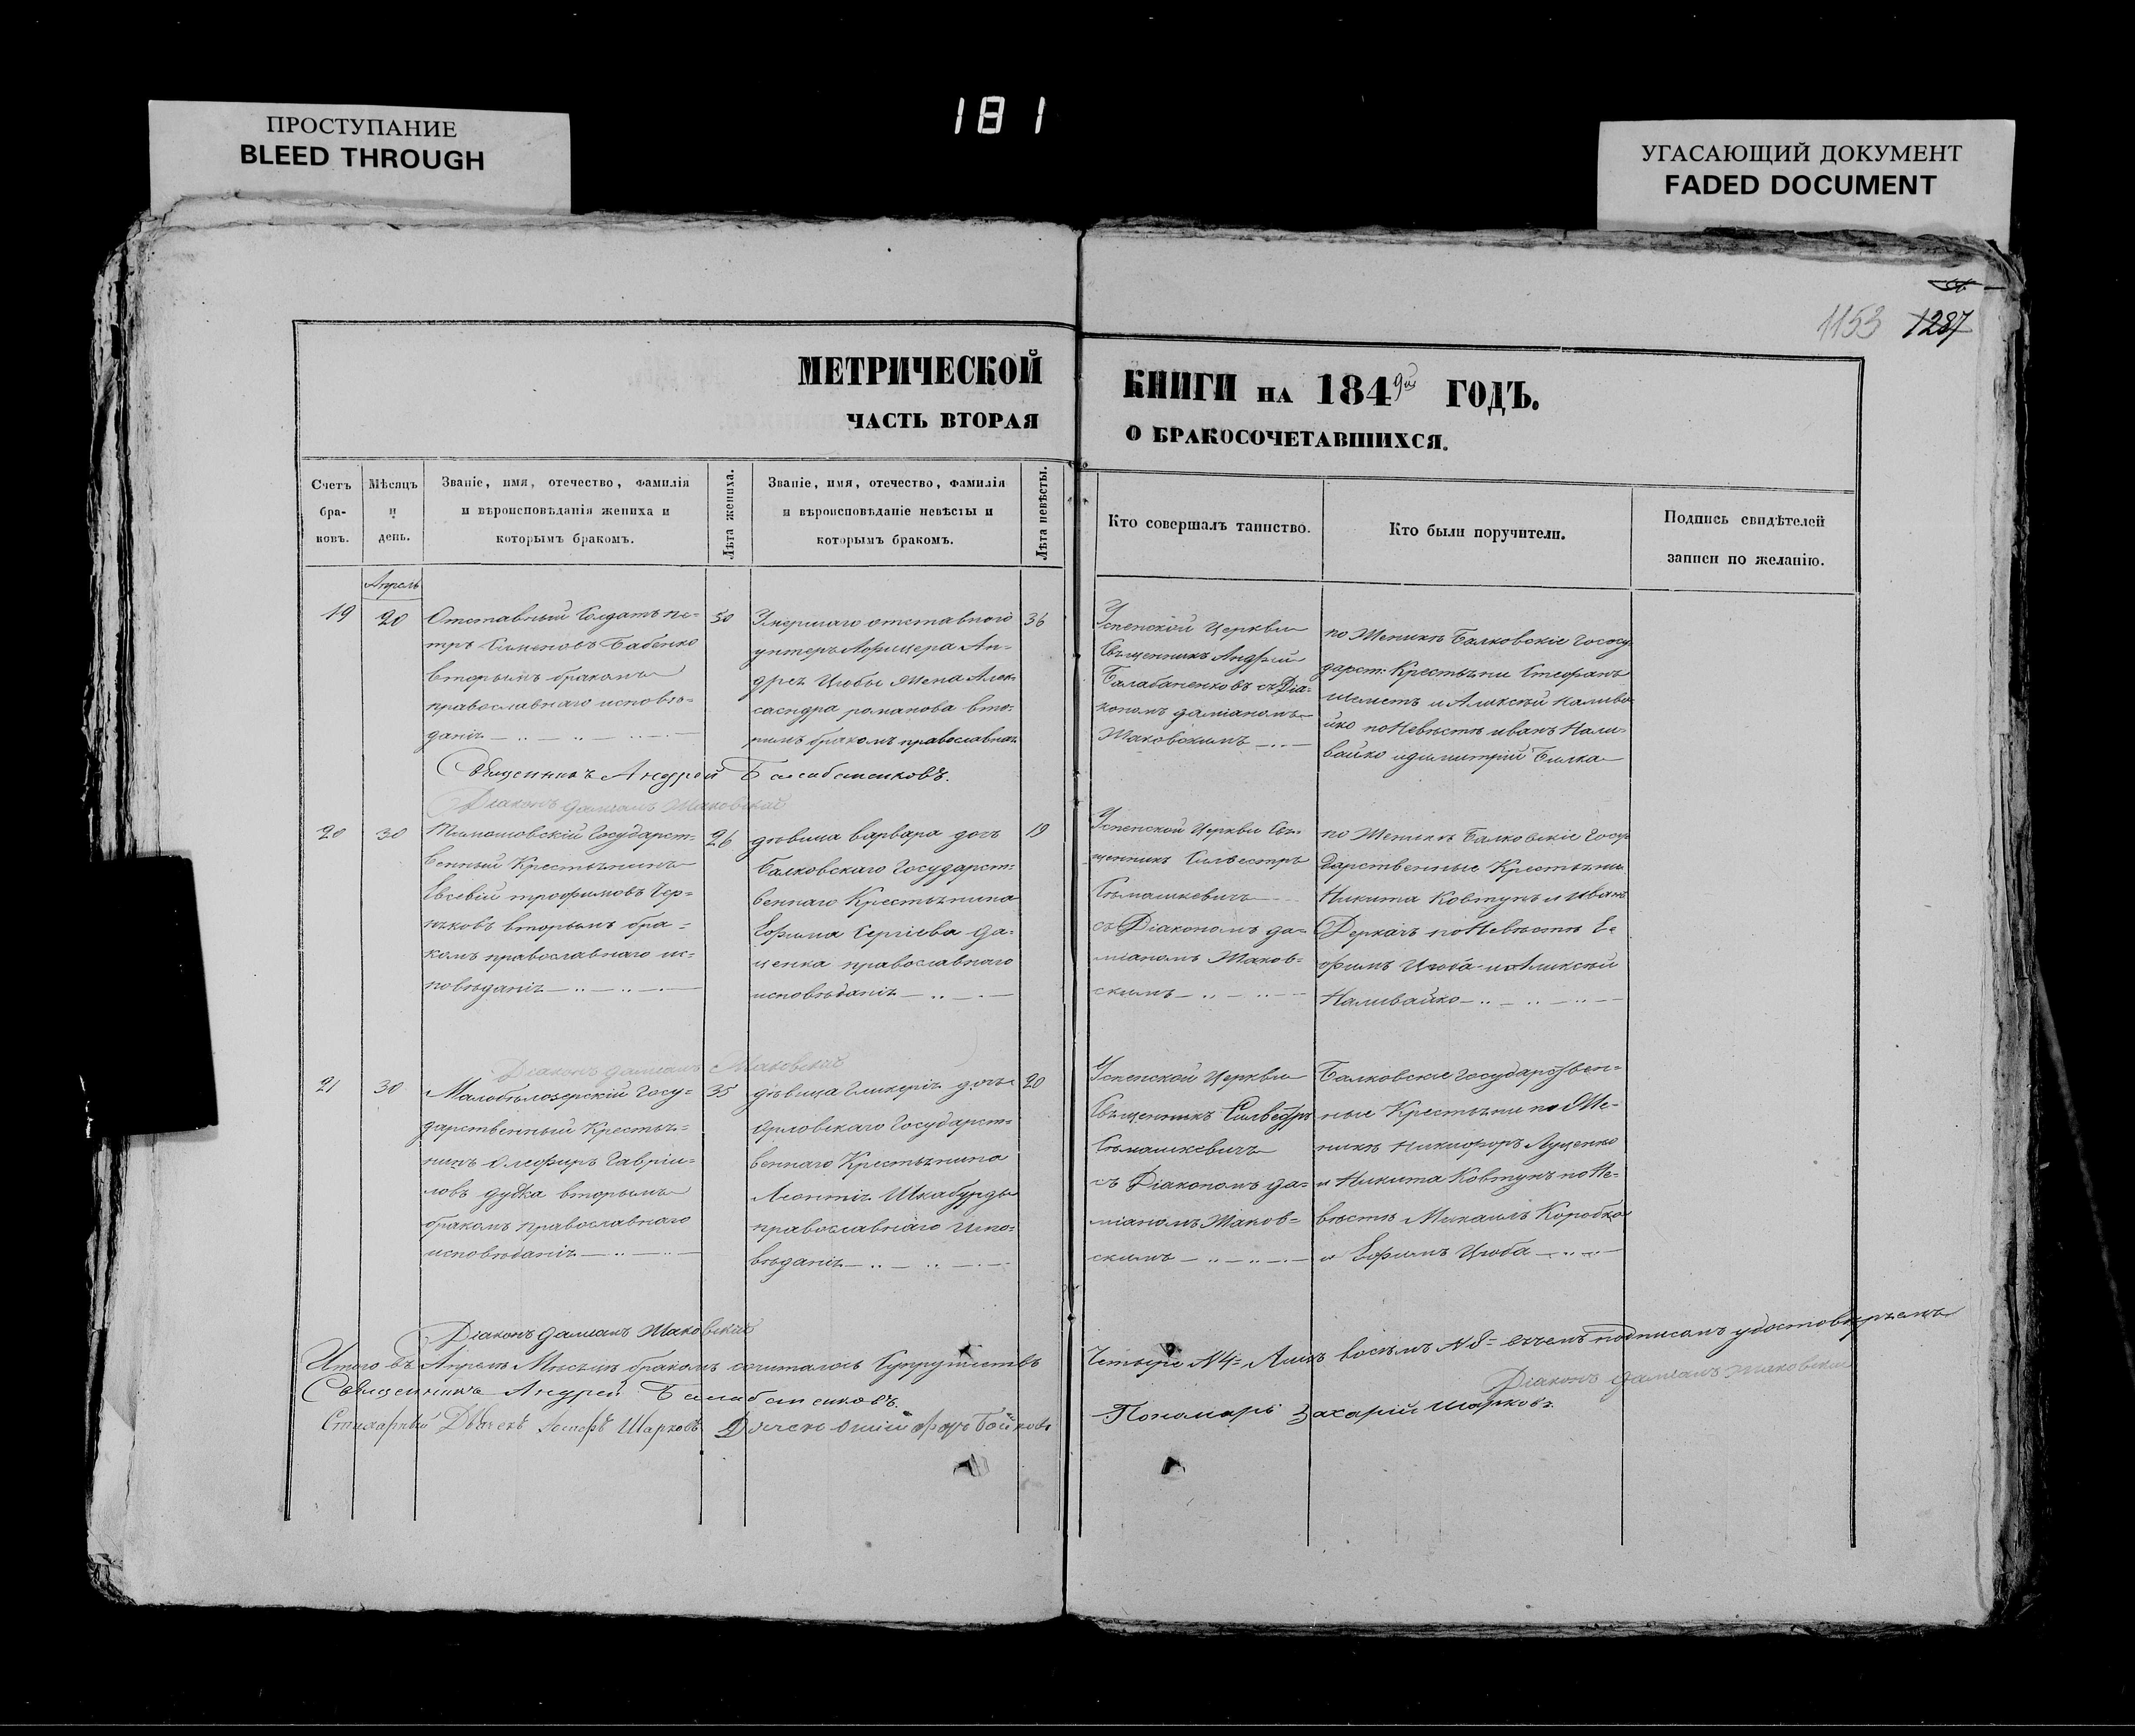 181
ПРОСТУПАНИЕ
BLEED THROUGH
УГАСАЮЩИЙ ДОКУМЕНТ
FADED DOCUMENT
1153 1287
МЕТРИЧЕСКОЙ
ЧАСТЬ ВТОРАЯ
КНИГИ НА 1849й ГОДЪ.
О БРАКОСОЧЕТАВШИХСЯ.
Счетъ
бра-
ковъ.
Мѣсяцъ
и
день.
Званіе, имя, отечество, фамилія
и вѣроисповѣданія жениха и
которымъ бракомъ.
Лѣта жениха.
Званіе, имя, отечество, фамилія
и вѣроисповѣданіе невѣсты и
которымъ бракомъ.
Лѣта невѣсты.
Кто совершалъ таинство.
Кто были поручители.
Подпись свидѣтелей
записи по желанію.
Апрель
19
20
Отставный Солдатъ пе-
тръ Сименовъ Бабенко
вторымъ бракомъ
православнаго исповѣ-
данія
50
Умершаго отставного
унтеръ Афицера Ан-
дрея Цюбы жена Алек-
сасндра романова вто-
римъ бракомъ православнаго
36
Успенской Церкви
Священникъ Андрей
Балабаненковъ съ Діа-
кономъ даміаномъ
Маковскимъ
по Женихѣ Балковскіе Гососу-
дарст: Крестьяни Стефанъ
Шеметъ и Алексѣй Налива-
йко по Невѣстѣ иванъ Нали-
вайко идимитрій Билка
Священникъ Андрей Балабаненковъ.
Діаконъ Даміанъ Маковскій
20
30
Тимошовскій Государст-
венный Крестьянинъ
Евсевій трофимовъ Чер-
няковъ вторымъ бра-
комъ православнаго ис-
повѣданія
26
дѣвица варвара дочь
Балковскаго Государст-
веннаго Крестьянина
Ефима Сергіева да-
ценка православнаго
исповѣданія
19
Успенской Церкви Свя-
щенникъ Сильвестръ
Сѣмашкевичъ
съ Діакономъ да-
міаномъ Маков-
скимъ
по Женихѣ Балковскіе Госу-
дарственные Крестьяни
Никита Ковтунъ и иванъ
Деркачъ по Невѣстѣ Е-
фимъ Цюба и Алексѣй
Наливайко
Діаконъ Даміанъ Маковскій
21
30
Малобѣлозерскій Госу-
дарственный Крестья-
нинъ Олефиръ Гаврии-
ловъ дудка вторымъ
бракомъ православнаго
исповѣданія
35
дѣвица Гликерія дочь
Орловскаго Государст-
веннаго Крестьянина
Леонтія Шкабурды
православнаго Испо-
вѣданія
20
Успенской Церкви
Священникъ Силвестръ
Сѣмашкевичъ
съ Діакономъ да-
міаномъ Маков-
скимъ
Балковскіе Государствен-
ные Крестьяни по Же-
нихѣ Никифоръ Луценко
и Никита Ковтунъ по Не-
вѣстѣ Михаилъ Коробка
и Ефимъ Цюба
Діаконъ Даміанъ Маковскій
Итого въ Апрелѣ Мѣсяцѣ бракомъ сочиталось Супружествъ Четыре N 4= Лицъ восѣмъ N 8= въчемъ подписомъ удостовѣряемъ
Священникъ Андрей Балабаненковъ.
Діаконъ Даміанъ Маковскій
Стихарный Дьячекъ Шарковъ Дьячекъ Бойковъ
Пономарь Захарій Шарковъ.